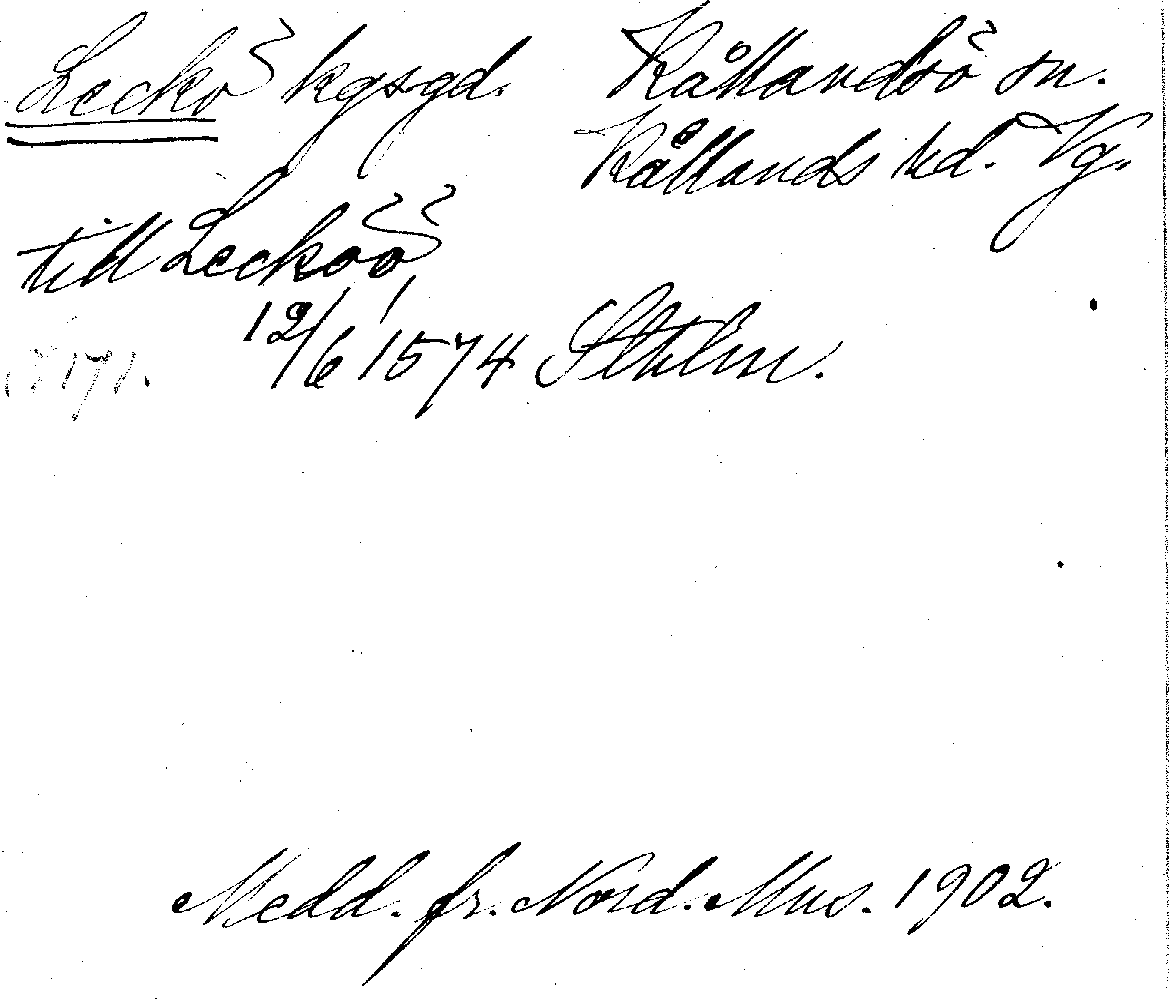 Leckö kgsgd. Kållandsö sn.
Kållands hd. Vg.
till Lecköö
12/6 1574 Sthlm.
171.
Medd. fr. Nord. Mus. 1902.